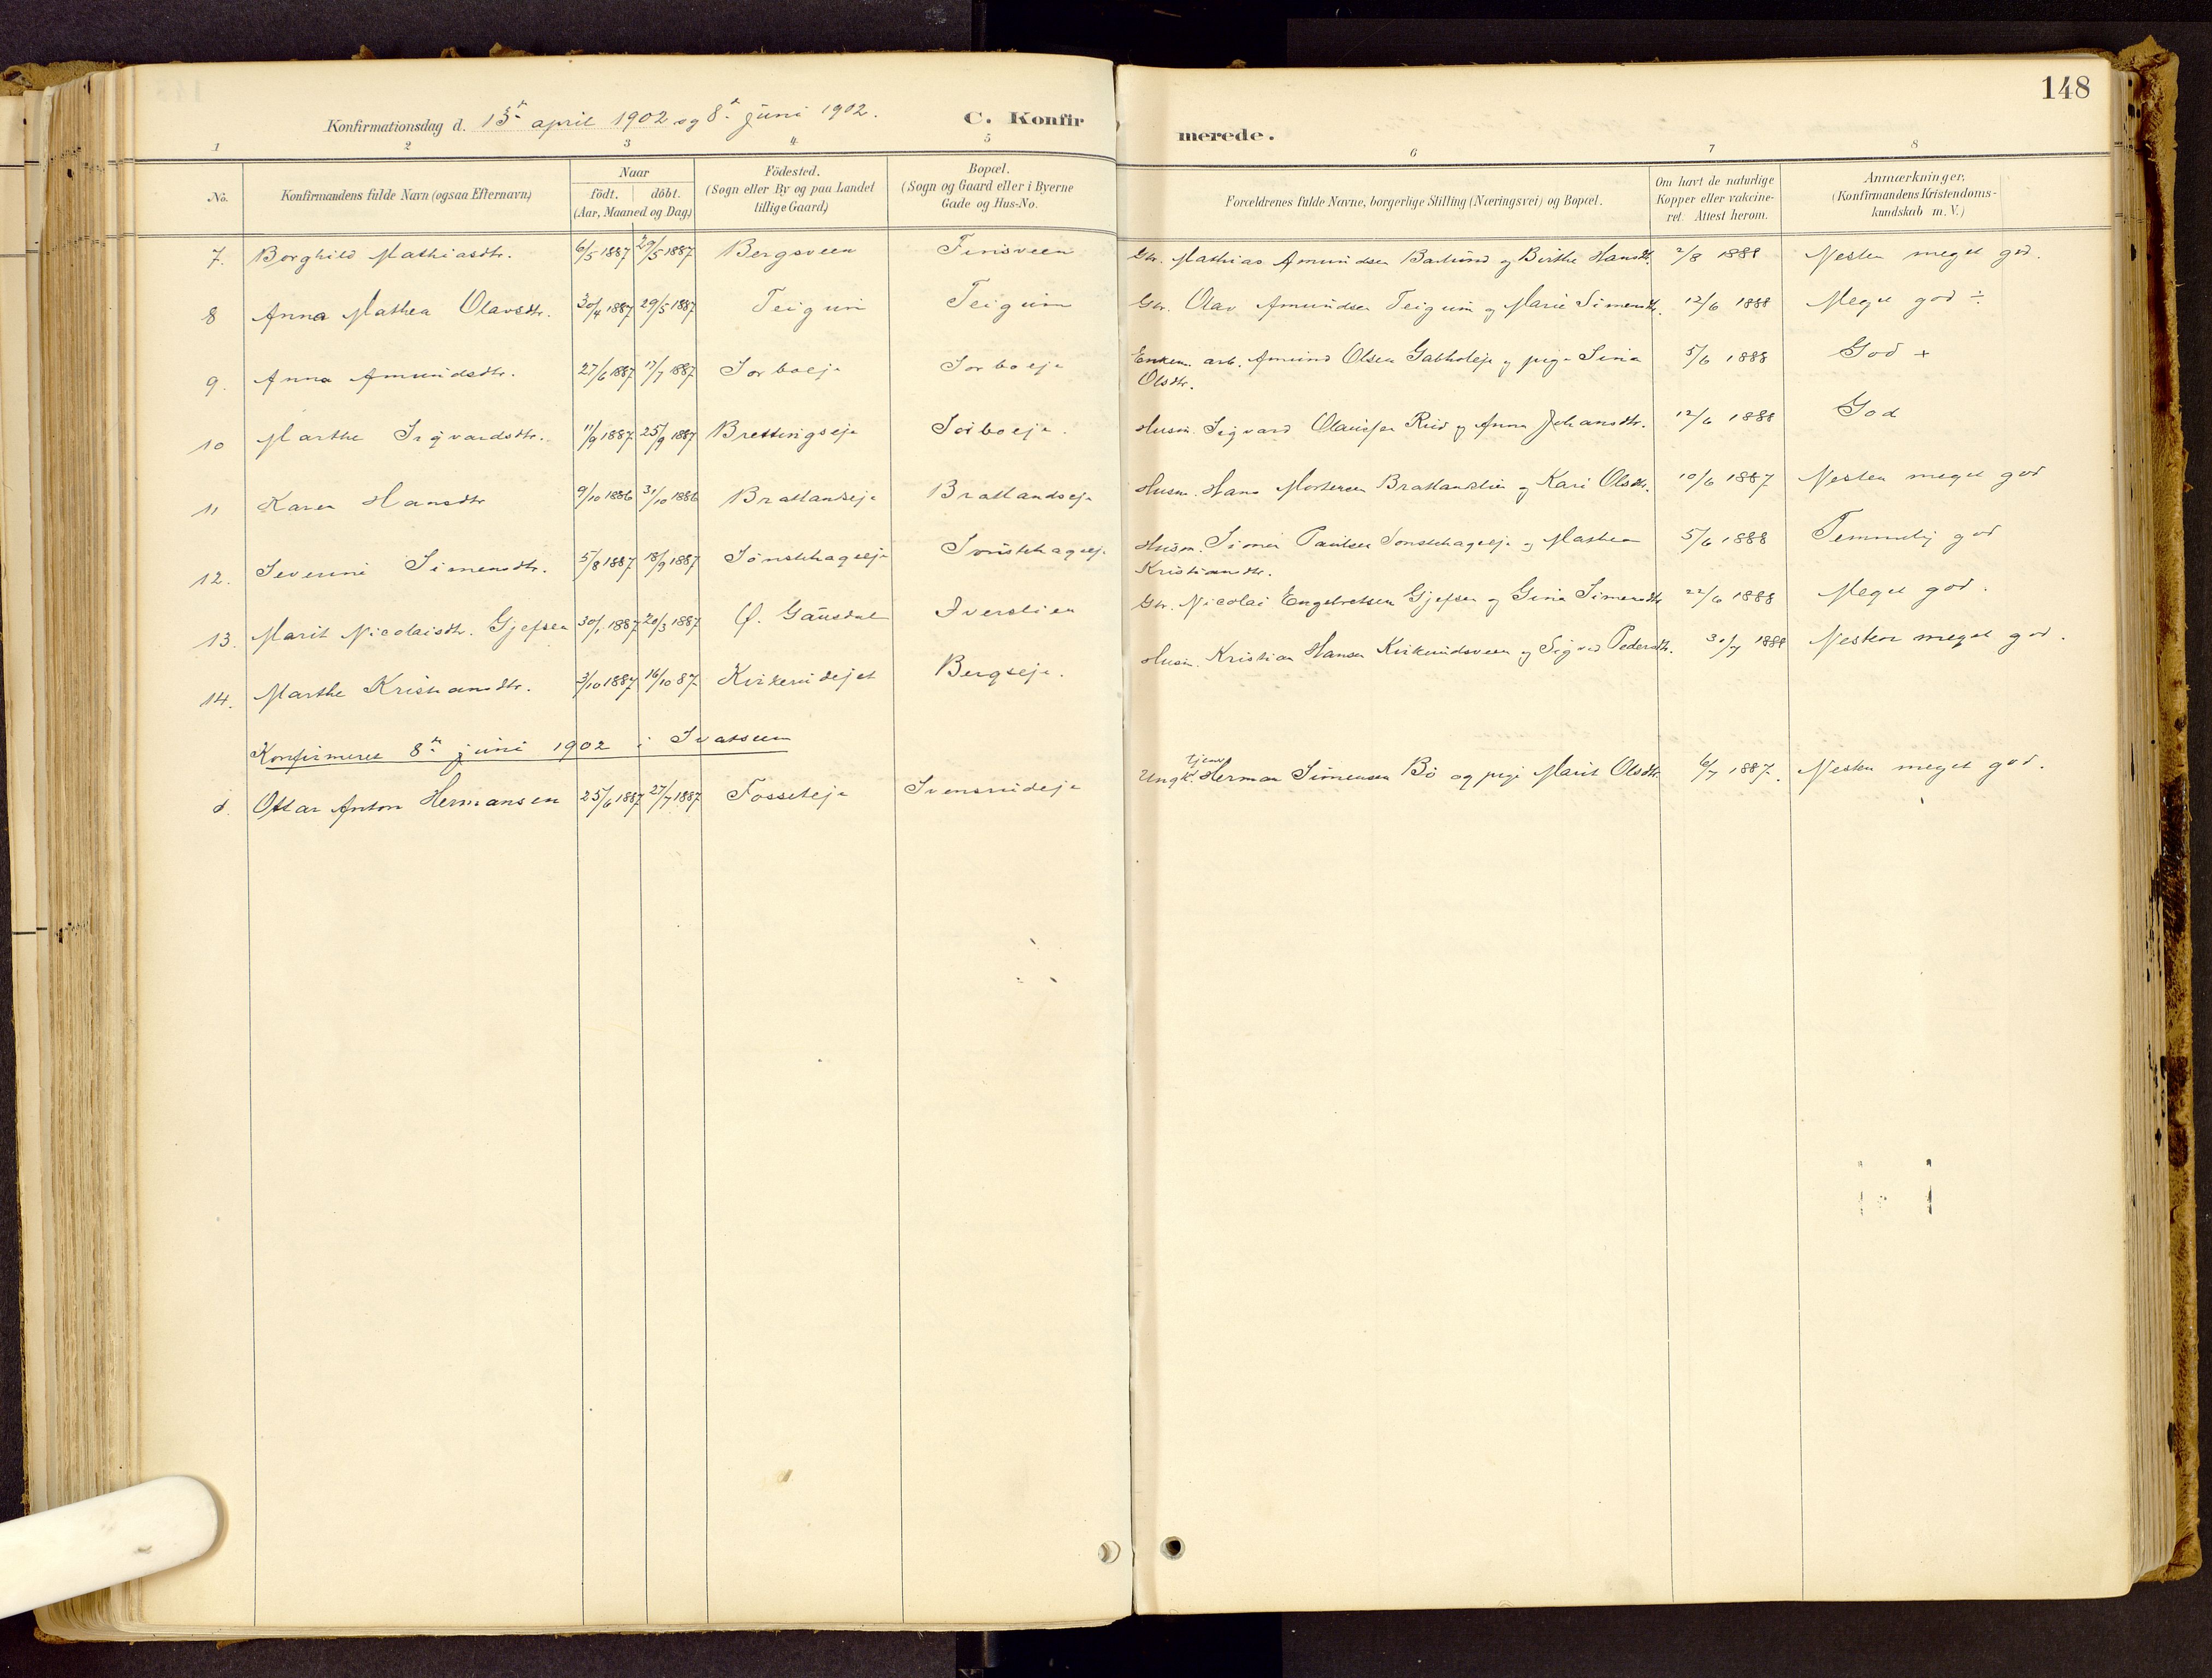 148
Konfirmationsdag d. 13de april 1902 og 8de juni 1902. C. Konfirmerede.
1 2 3 4 5 6 7 8
No. Konfirmandens fulde Navn (ogsaa Efternavn) Naar födt. döbt. (Aar, Maaned og Dag) Födested. (Sogn eller By og paa Landet tillige Gaard) Bopæl. (Sogn og Gaard eller i Byerne Gade og Hus-No. Forældrenes fulde Navne, borgerlige Stilling (Næringsvei) og Bopæl. Om havt de naturlige Kopper eller vakcineret. Attest herom. Anmærkninger, (Konfirmandens Kristendomskundskab m. V.)
7. Borghild Mathiasdtr. 6/5 1887 29/5 1887 Bergsveen Finsveen Gbr. Mathias Amundsen Baelund og Birthe Hansdt. 2/8 1888 Nesten meget god.
8 Anna Mathea Olavsdtr. 30/4 1887 29/5 1887 Teigum Teigum Gbr. Olav Amundsen Teigum og Marie Simensdtr. 12/6 1888 Meget god ÷
9. Anna Amundsdtr. 27/6 1887 17/7 1887 Sorboeje Sorboeje Enkem. arb. Amund Olsen og pige Sina
Olsdtr. 5/6 1888 God +
10 Marthe Sigvardsdtr. 11/9 1887 25/9 1887 Brettingseje Sorboeje. Husm. Sigvard Olaussen Rud og Anna Johansdtr. 12/6 1888 God
11 Karen Hansdtr 9/10 1886 31/10 1886 Bratlandseje Bratlandseje Husm. Hans Mortensen Bratlandslien og Kari Olsdtr. 10/6 1887 Nesten meget god
12. Severine Simensdtr. 5/8 1887 18/9 1887 Sönstehageeje Sönstehageeje Husm. Simen Paulsen Sönstehageeje og Mathea
Kristiansdtr. 5/6 1888 Temmelig god
13. Marit Nicolaisdtr. Gjefsen 30/1 1887 20/3 1887 Ø. Gausdal Iverslien Gbr. Nicolai Engebretsen Gjefsen og Gina Simensdtr 22/6 1888 Meget god.
14. Marthe Kristiansdtr. 3/10 1887 16/10 87 Kirkerudejet Bergseje. Husm. Kristian Hansen Kirkerudsveen og Sigrid Pedersdtr. 30/7 1888 Nesten meget god.
Konfirmeret 8de juni 1902 i Svatsum
d. Ottar Anton Hermansen 25/6 1887 27/7 1887 Fosseteje Svensrudeje Ungk. tjen. Herman Simensen Bö og pige Marit Olsdtr. 6/7 1887. Nesten meget god.